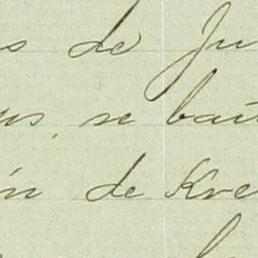 s de Ju
us, se bau
ón de Kre